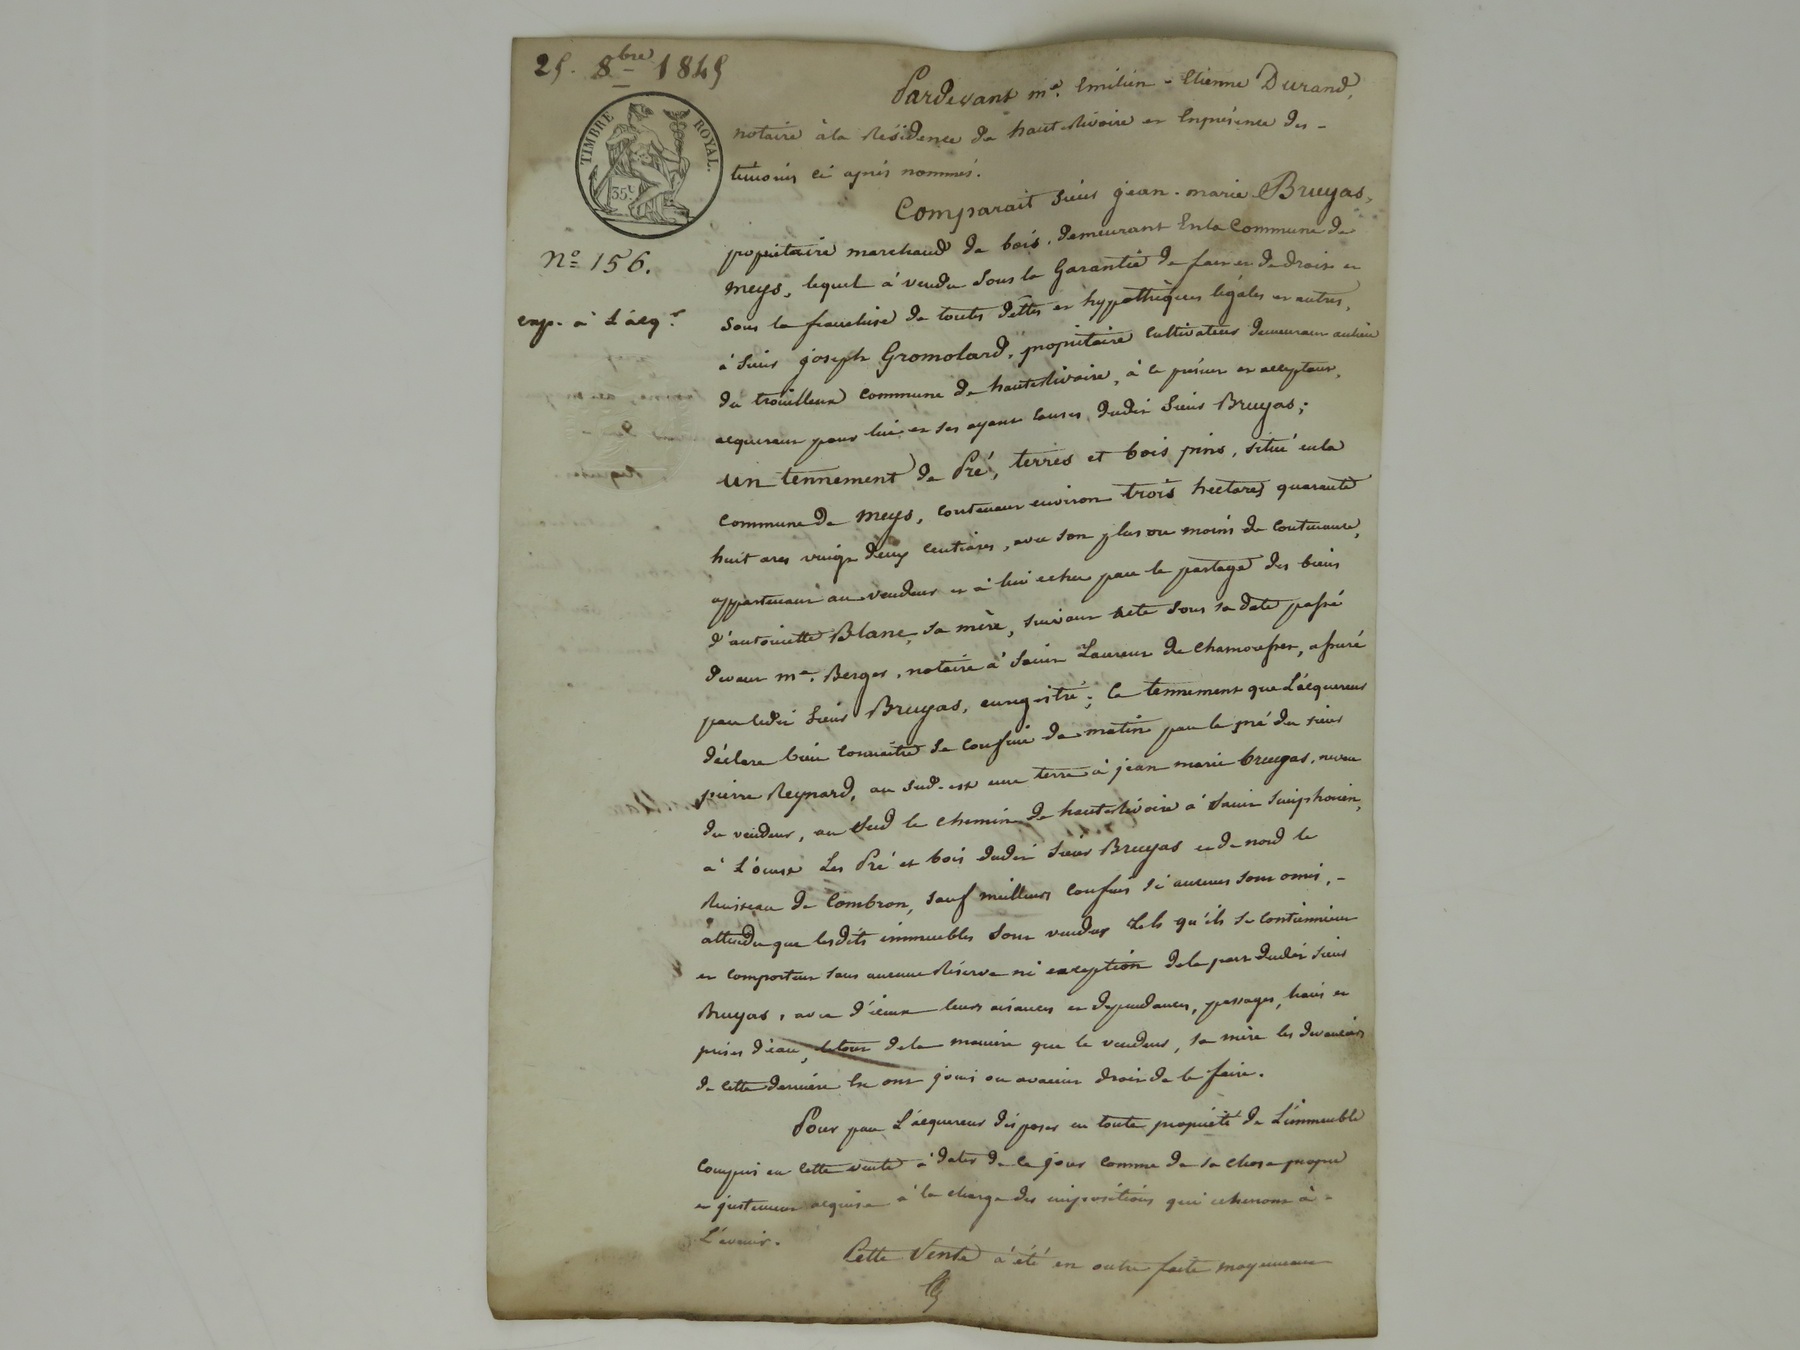 25. 8bre 1845
TIMBRE ROYAL.
35c
No 156.
exp. à L'acqr.
Pardevant me. Emilien-Etienne Durand,
notaire à la Résidence de haute Rivoire en Enprésence des-
témoins ci après nommés.
Comparait Sieur jean-marie Bruyas,
propriétaire marchand de bois, demeurant En la Commune de
meys, lequel à vendu sous la Garantie de fait et de droit et
sous la franchise de toutes dettes et hypothèques légales et autres,
à Sieur joseph Gromolard, propriétaire cultivateur demeurant au lieu
du trouilleux commune de haute Rivoire, à ce présent et acceptant,
acquéreur pour lui et ses ayant causes dudit Sieur Bruyas;
un tennement de Pré, terres et bois pins, situé en la
commune de meys, contenant environ trois hectares quarante
huit ares vingt deux centiares, avec son plus ou moins de contenance,
appartenant au vendeur et à lui echu par le partage des biens
d'antoinette Blanc, sa mère, suivant acte sous sa date passé
devant me. Berger, notaire à Saint Laurent de Chamousset, assuré
par ledit Sieur Bruyas, enregistré; ce tennement que L'acquereur
déclare bien connaitre se confine de matin par le pré du sieur
pierre Reynard, au sud-est une terre à jean marie bruyas, neveu
du vendeur, au sud le chemin de haute Rivoire à Saint Simphorien,
à L'ouest Les Pré et bois dudit Sieur Bruyas et de nord le
Ruisseau de Combron, sauf meilleurs confins si aucuns sont omis,-
attendu que lesdits immeubles sont vendus tels qu'ils se contiennent
et comportent sans aucune Réserve ni exception dela part dudit sieur
Bruyas, avec d'iceux leurs aisances et dépendances, passages, biais et
prises d'eau, le tout dela manière que le vendeur, sa mère les devanciers
de cette dernière En ont joui ou avaient droit de le faire.
Pour par L'acquereur disposer en toute propriété de L'immeuble
compris en cette vente à dater de ce jour comme de sa chose propre
et justement acquise à la charge des impositions qui echerront à-
L'avenir.
Cette Vente à été en outre faite moyennant